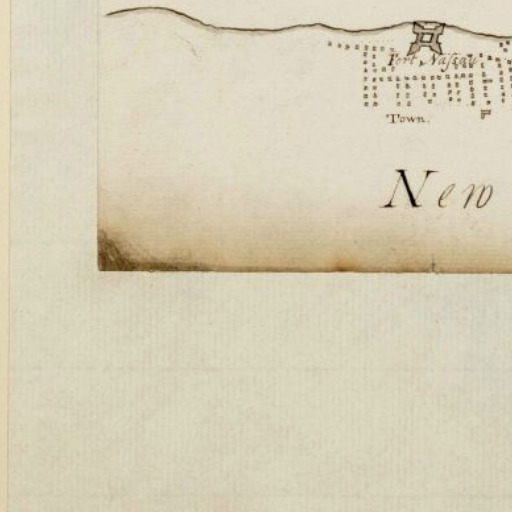 Fort Naſſau
Town.
New